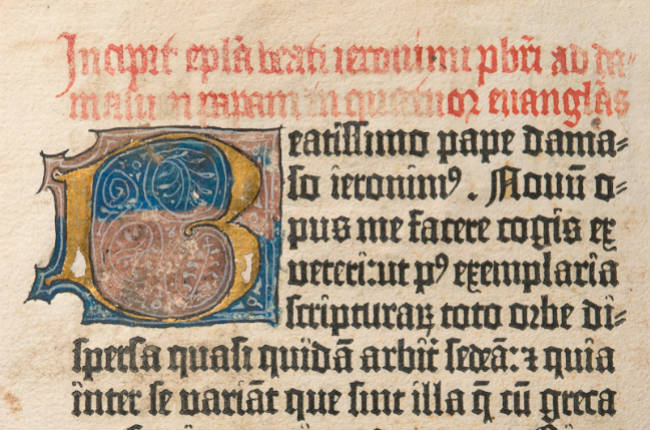 Incipit epl̄a beati ieronimi pbrī ad da-
masum papam in quatuor euangl̄as
Beatissimo pape dama-
so ieronimꝰ. Nouū o-
pus me facere cogis ex
veteri: ut pꝰ exemplaria
scripturaꝝ toto orbe di-
spersa quasi quidā arbiṫ sedeā: ⁊ quia
inter se variāt que sint illa q̄ cū greca